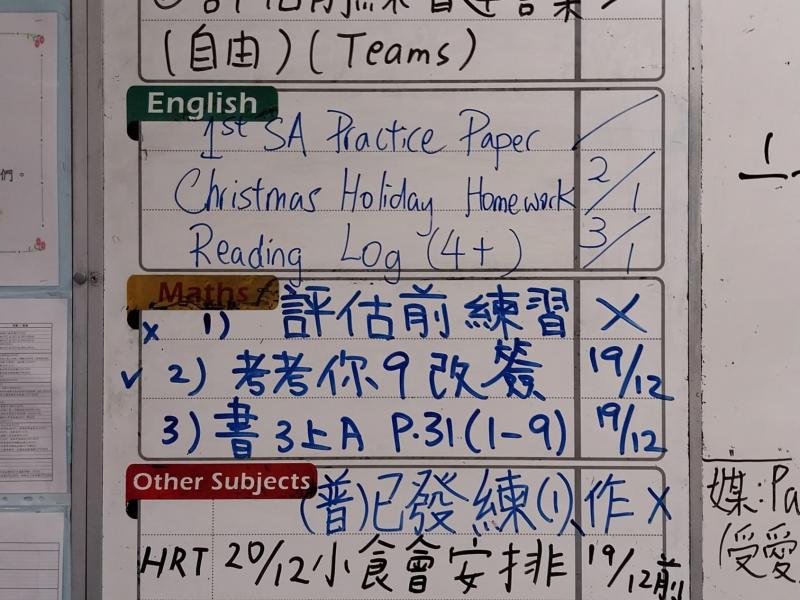 評估前練習
(自由)(Teams)
English
1st SA Practice Paper /
Christmas Holiday Homework 2/1
Reading Log (4+) 3/1
Maths
x 1) 評估前練習 X
✓ 2) 考考你9改簽 19/12
3) 書3上A P.31(1-9) 19/12
Other Subjects
(普)已發練(1)、作 X
HRT 20/12小食會安排 19/12前
們。
媒:Pa
(受愛